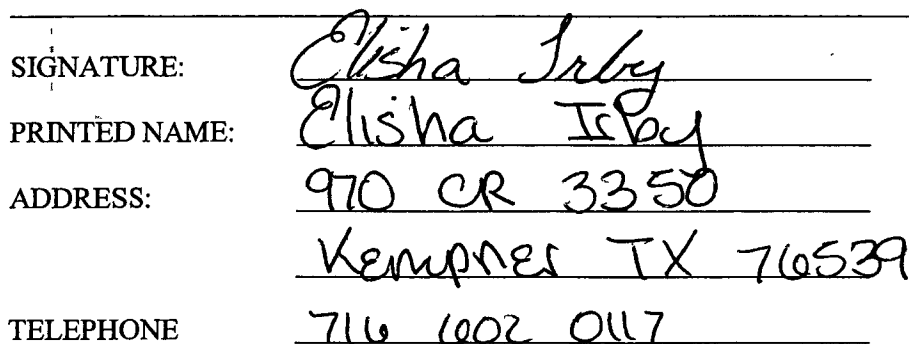 SIGNATURE: Elisha Irby
PRINTED NAME: Elisha Irby
ADDRESS: 970 CR 3350
Kempner TX 76539
TELEPHONE 716 602 0117